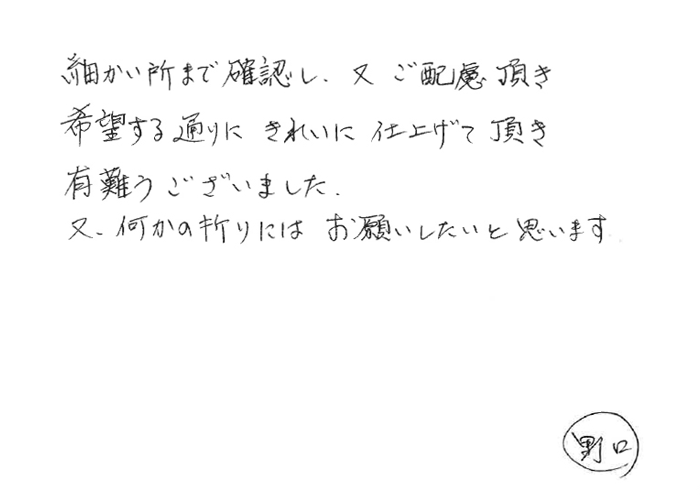 細かい所まで確認し、又 ご配慮 頂き
希望する通りに きれいに 仕上げて 頂き
有難うございました.
又、何かの折りには お願いしたいと思います
野口